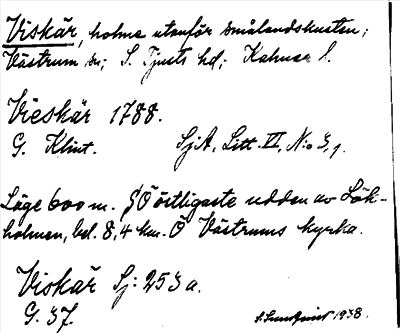 Viskär, holme utanför smålandskusten;
Västrum sn; S. Tjusts hd; Kalmar l.
Vieskär 1788.
G. Klint. SjA, Litt. VI, N:o 3,1.
Läge 600 m. SÖ östligaste udden av Lök-
holmen, bel. 8,4 km. Ö Västrums kyrka.
Viskär Sj: 253 a.
G. 37. 1938.